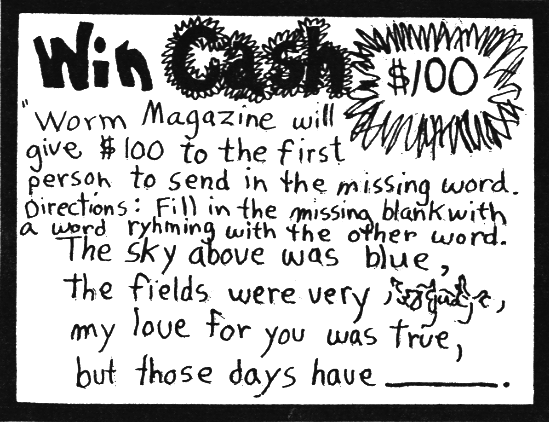 Win Cash $100
"Worm Magazine will
give $100 to the first
person to send in the missing word.
Directions: Fill in the missing blank with
a word ryhming with the other word.
The sky above was blue,
the fields were very ,
my love for you was true,
but those days have ________.